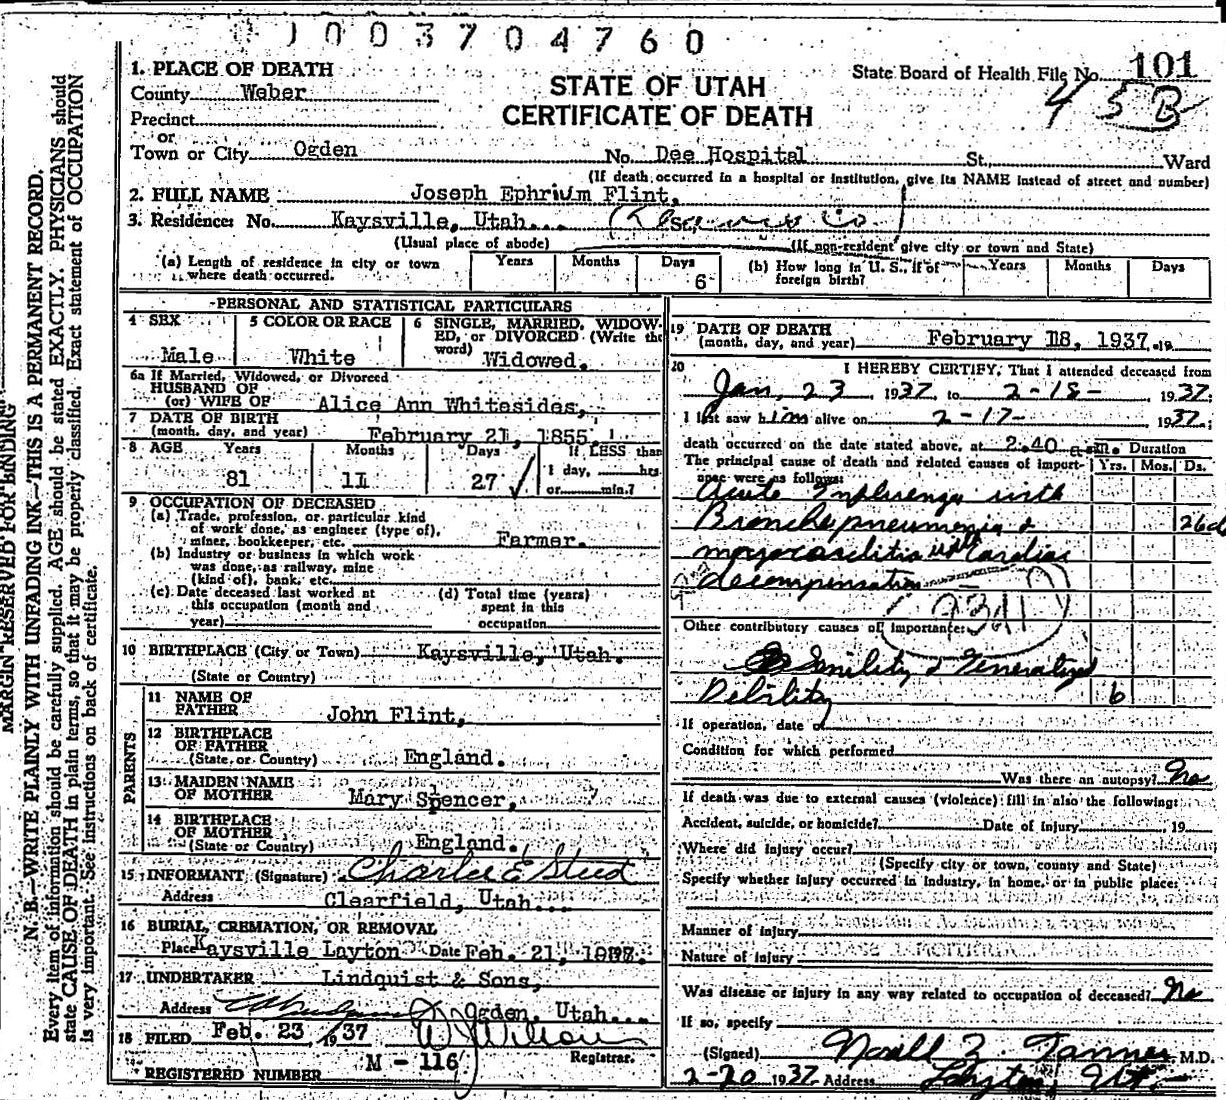 01003704760
1. PLACE OF DEATH
STATE OF UTAH
CERTIFICATE OF DEATH
State Board of Health File No. 101
45B
County Weber
Precinct
or
Town or City Ogden No. Dee Hospital St. Ward
(If death occurred in a hospital or institution, give its NAME instead of street and number)
2. FULL NAME Joseph Ephrium Flint,
3. Residence: No. Kaysville, Utah...
(Usual place of abode) (If non-resident give city or town and State)
(a) Length of residence in city or town where death occurred. Years Months Days 6
(b) How long in U. S., if of foreign birth? Years Months Days
PERSONAL AND STATISTICAL PARTICULARS
4 SEX Male
5 COLOR OR RACE White
6 SINGLE, MARRIED, WIDOWED, or DIVORCED (Write the word) Widowed.
6a If Married, Widowed, or Divorced
HUSBAND OF
(or) WIFE OF Alice Ann Whitesides,
7 DATE OF BIRTH
(month, day, and year) February 21, 1855.
8 AGE Years 81 Months 11 Days 27 If LESS than 1 day, hrs. or min.?
9 OCCUPATION OF DECEASED
(a) Trade, profession, or particular kind
of work done, as engineer (type of),
miner, bookkeeper, etc. Farmer.
(b) Industry or business in which work
was done, as railway, mine
(kind of), bank, etc.
(c) Date deceased last worked at
this occupation (month and
year)
(d) Total time (years)
spent in this
occupation
10 BIRTHPLACE (City or Town) Kaysville, Utah.
(State or Country)
PARENTS
11 NAME OF
FATHER John Flint,
12 BIRTHPLACE
OF FATHER
(State or Country) England.
13 MAIDEN NAME
OF MOTHER Mary Spencer,
14 BIRTHPLACE
OF MOTHER
(State or Country) England.
15 INFORMANT (Signature) Charles E Steed
Address Clearfield, Utah...
16 BURIAL, CREMATION, OR REMOVAL
Place Kaysville Layton Date Feb. 21, 1937.
17 UNDERTAKER Lindquist & Sons,
Address Ogden, Utah...
18 FILED Feb. 23 1937 W J Wilson
Registrar.
M - 116
REGISTERED NUMBER
19 DATE OF DEATH
(month, day, and year) February 18, 1937. 19
20 I HEREBY CERTIFY, That I attended deceased from
Jan, 23 1937, to 2-18- 1937:
I last saw him alive on 2-17- 1937.;
death occurred on the date stated above, at 2:40 a.m. Duration
The principal cause of death and related causes of importance were as follows: Yrs. Mos. Ds.
Acute Influenza with
Bronchopneumonia & 26d
myocarditis with Cardiac
decompensation
Other contributory causes of importance:
Senility & Generalized
Debility 6
If operation, date of
Condition for which performed
Was there an autopsy? No
If death was due to external causes (violence) fill in also the following:
Accident, suicide, or homicide? Date of injury , 19
Where did injury occur?
(Specify city or town, county and State)
Specify whether injury occurred in industry, in home, or in public place:
Manner of injury
Nature of injury
Was disease or injury in any way related to occupation of deceased? No
If so, specify
(Signed) Noall Z. Tanner M.D.
2-20 1937 Address Layton, Ut.
MARGIN RESERVED FOR BINDING
N. B.—WRITE PLAINLY WITH UNFADING INK—THIS IS A PERMANENT RECORD.
Every item of information should be carefully supplied. AGE should be stated EXACTLY. PHYSICIANS should
state CAUSE OF DEATH in plain terms, so that it may be properly classified. Exact statement of OCCUPATION
is very important. See instructions on back of certificate.